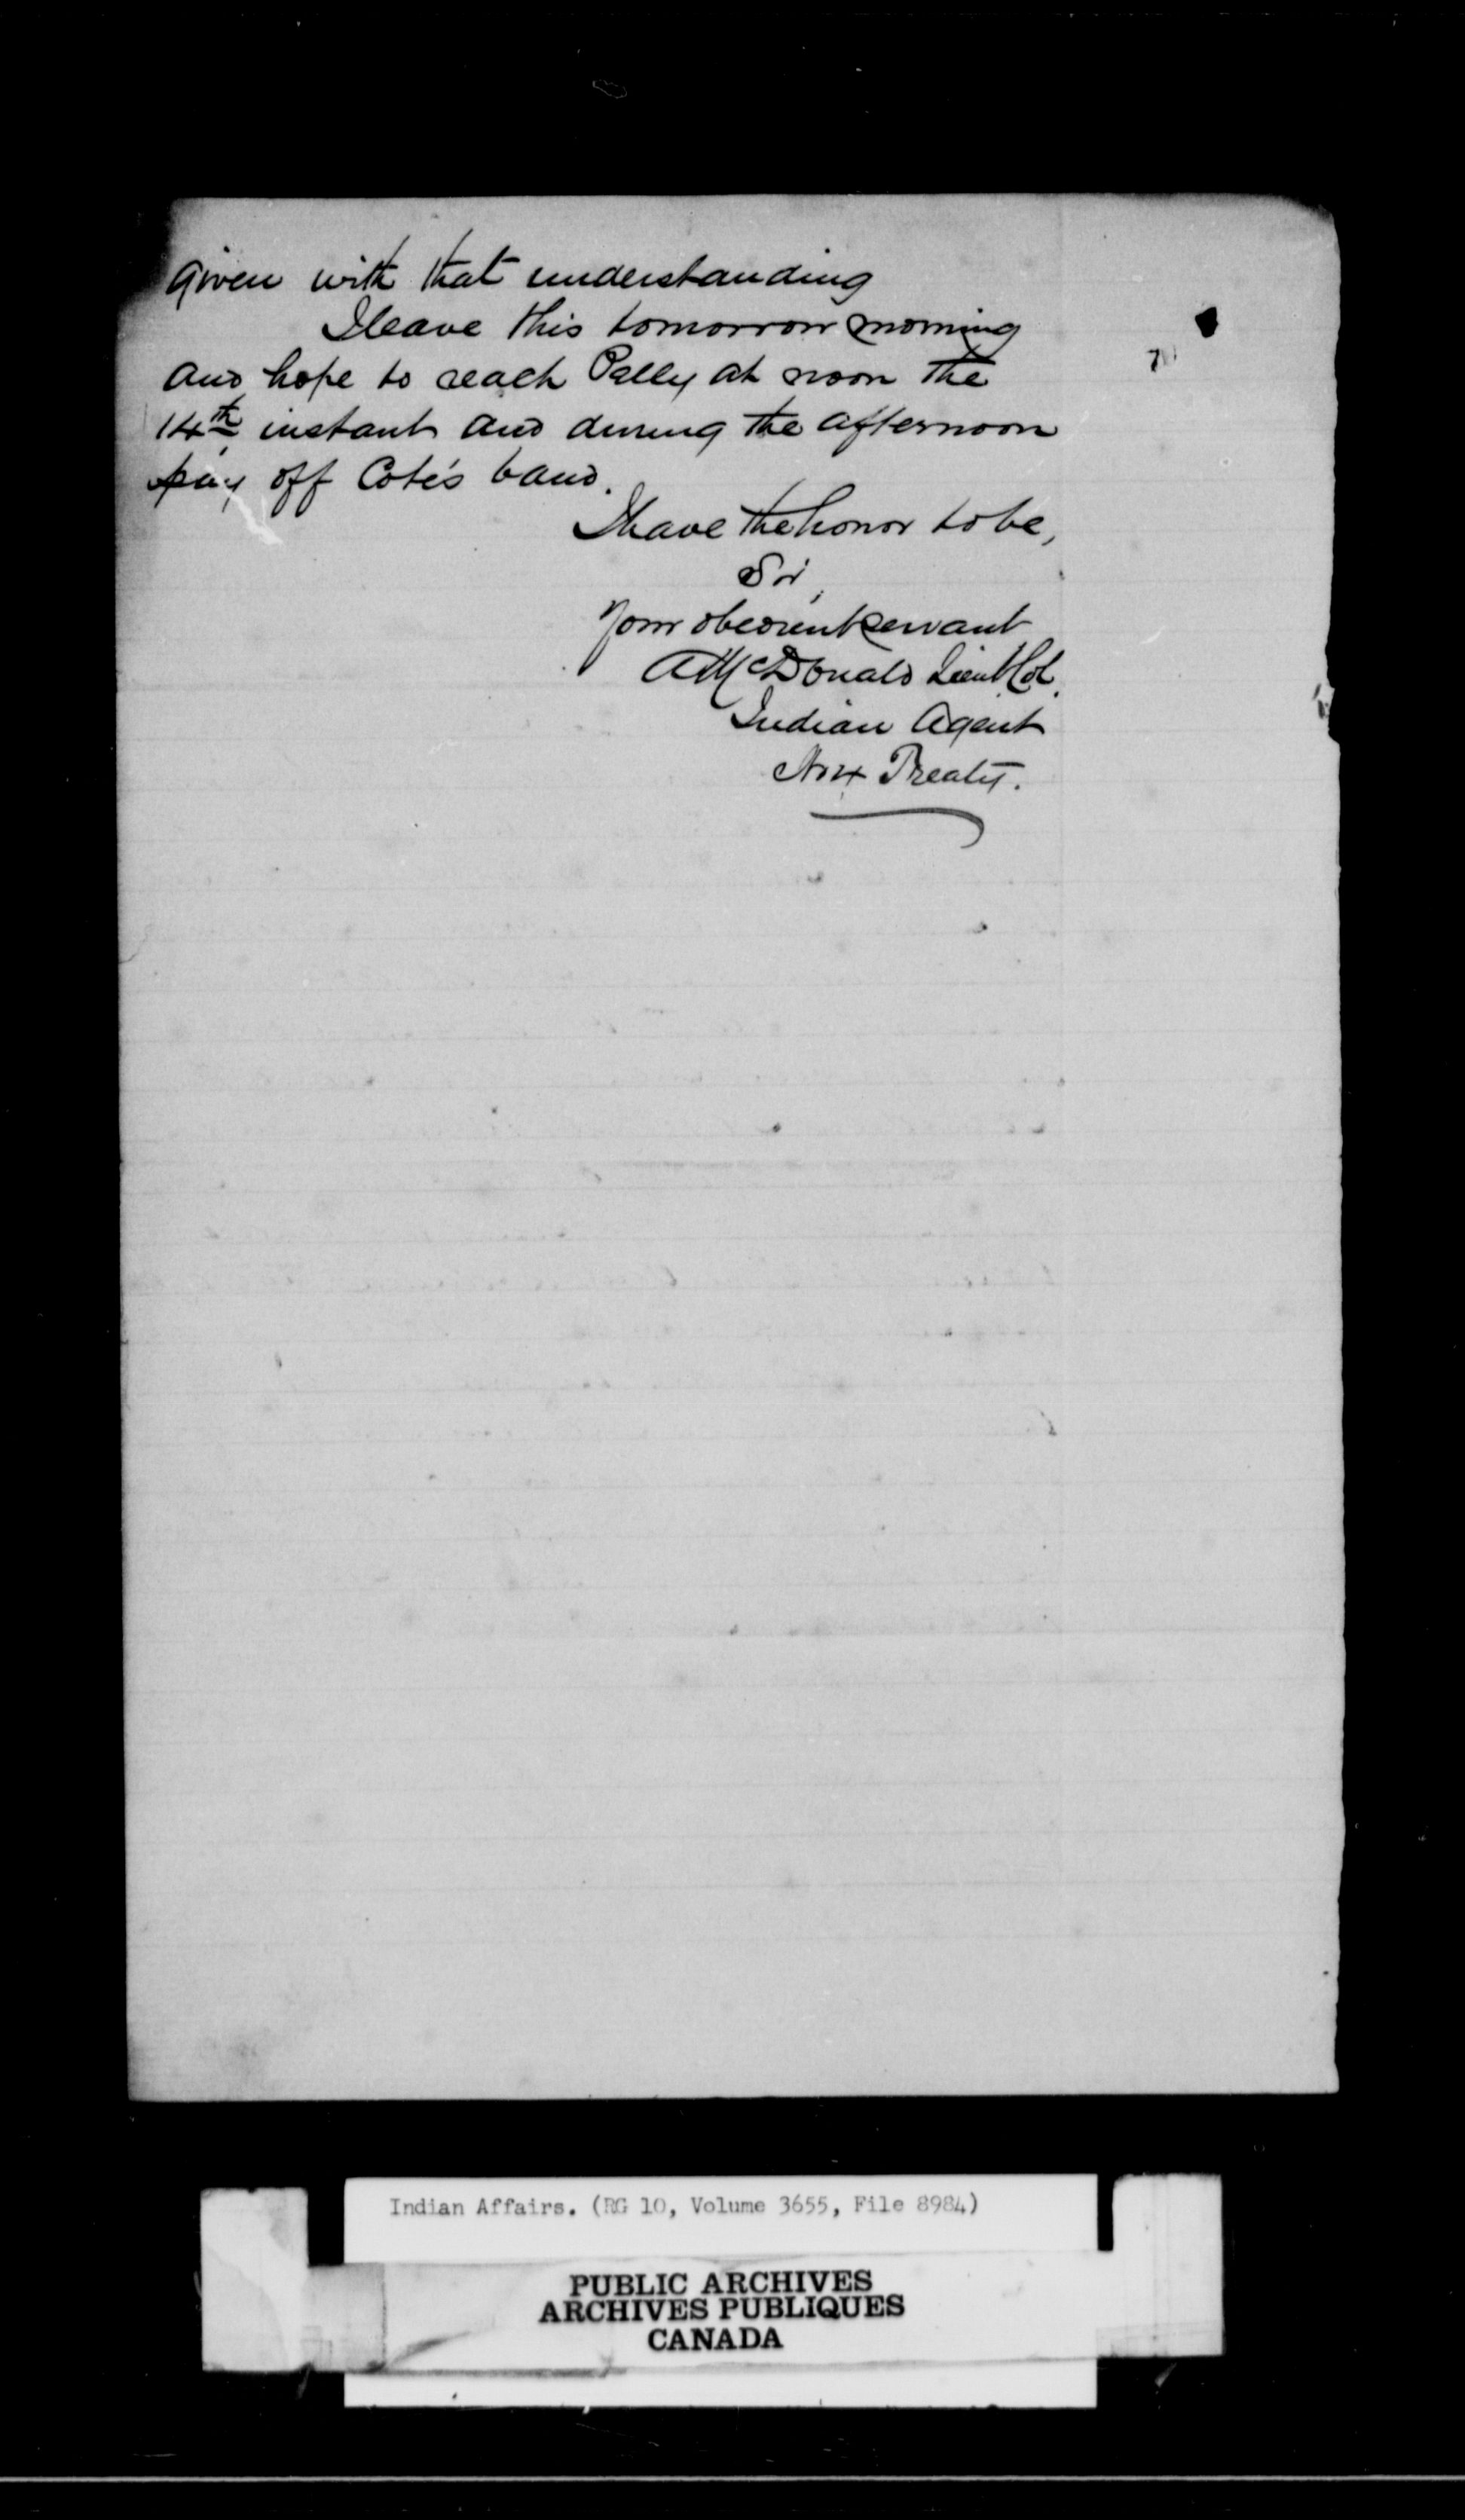 given with that understanding
I leave this tomorrow morning
and hope to reach Pelly at noon the
14th instant and during the afternoon
pay off Cote's band.
I have the honor to be,
Sir,
Your obedient servant
A McDonald Lieut Col.
Indian Agent
No 4 Treaty.
Indian Affairs. (RG 10, Volume 3655, File 8984)
PUBLIC ARCHIVES
ARCHIVES PUBLIQUES
CANADA